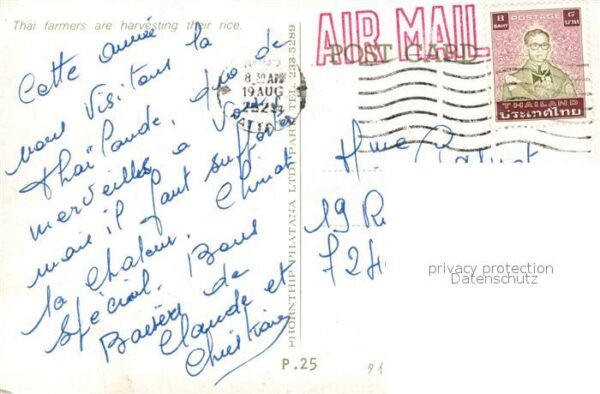 Thai farmers are harvesting their rice.
Cette année
nous visitons la
Thaïlande, que de
merveilles à voir
mais il faut supporter
la chaleur. Climat
spécial. Bons
Baisers de
Claude et
Christiane
PHORNTHIP PHATANA LTD., PART. TEL. 233 5289
AIR MAIL
POST CARD
8.30 AM
19 AUG
PATTAYA
8 POSTAGE ๘
BAHT บาท
THAILAND
ประเทศไทย
Mme
19 R
724
privacy protection
Datenschutz
P.25